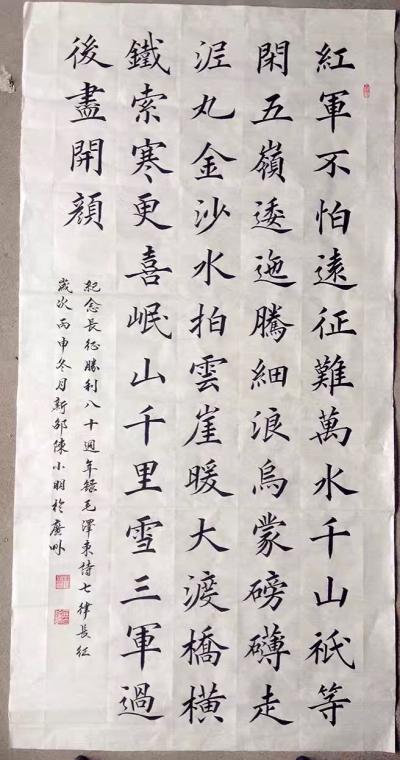 紅軍不怕遠征難萬水千山祇等
閑五嶺逶迤騰細浪烏蒙磅礴走
泥丸金沙水拍雲崖暖大渡橋橫
鐵索寒更喜岷山千里雪三軍過
後盡開顏
紀念長征勝利八十週年錄毛澤東詩七律長征
歲次丙申冬月新邵陳小明於廣州